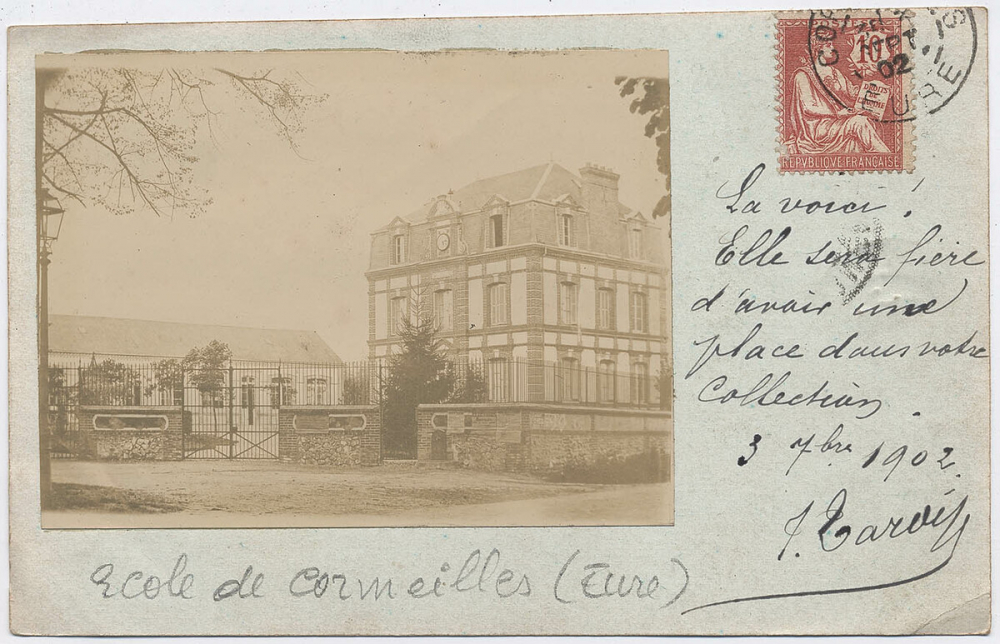 10
DROITS
DE
L'HOMME
REPVBLIQVE FRANÇAISE
EURE
02
La voici.
Elle sera fière
d'avoir une
place dans votre
Collection.
3 7bre 1902.
Ecole de Cormeilles (Eure)